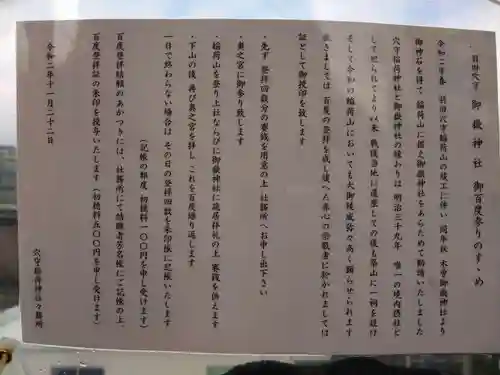 羽田穴守 御嶽神社 御百度参りのすゝめ
令和二年春 羽田穴守稲荷山の竣工に伴い 同年秋 木曽御嶽神社より
御神石を得て 稲荷山に鎮る御嶽神社をあらためて勧請いたしました
穴守稲荷神社と御嶽神社の縁わりは 明治三十九年 唯一の境内摂社と
して祀られてより以来 戦後当地に遷座しての後も築山に一祠を設け
そして令和の稲荷山においても大御稜威弥々高く顕らせられます
就きましては 百度の登拝を成し遂へた赤心の崇敬者に於かれましては
証として御授印を致します
・先ず 登拝回数分の賽銭を用意の上 社務所へお申し出下さい
・奥之宮に御参り致します
・稲荷山を登り上社ならびに御嶽神社に鎮居拝礼の上 賽銭を供えます
・下山の後 再び奥之宮を拝し これを百度繰り返します
一日で終わらない場合は その日の登拝回数を朱印帳に記帳いたします
(記帳の都度 初穂料一〇〇円を申し受けます)
百度登拝結願のあかつきには、社務所にて結願者芳名帳にご記帳の上、
百度登拝証の朱印を授与いたします (初穂料五〇〇円を申し受けます)
令和二年十一月二十二日
穴守稲荷神社々務所